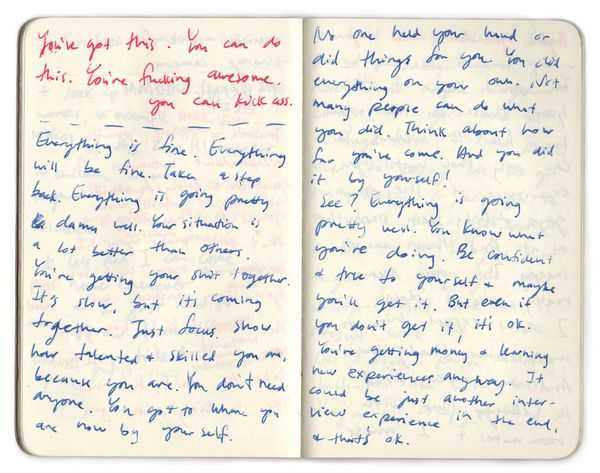 You've got this. You can do
this. You're fucking awesome.
you can kick ass.
Everything is fine. Everything
will be fine. Take a step
back. Everything is going pretty
damn well. Your situation is
a lot better than others.
You're getting your shit together.
It's slow, but it's coming
together. Just focus. Show
how talented & skilled you are,
because you are. You don't need
anyone. You got to where you
are now by your self.
No one held your hand or
did things for you. You did
everything on your own. Not
many people can do what
you did. Think about how
far you've come. And you did
it by yourself!
See? Everything is going
pretty well. You know what
you're doing. Be confident
& true to yourself & maybe
you'll get it. But even if
you don't get it, it's ok.
You're getting money & learning
new experiences anyway. It
could be just another inter-
view experience in the end,
& that's ok.